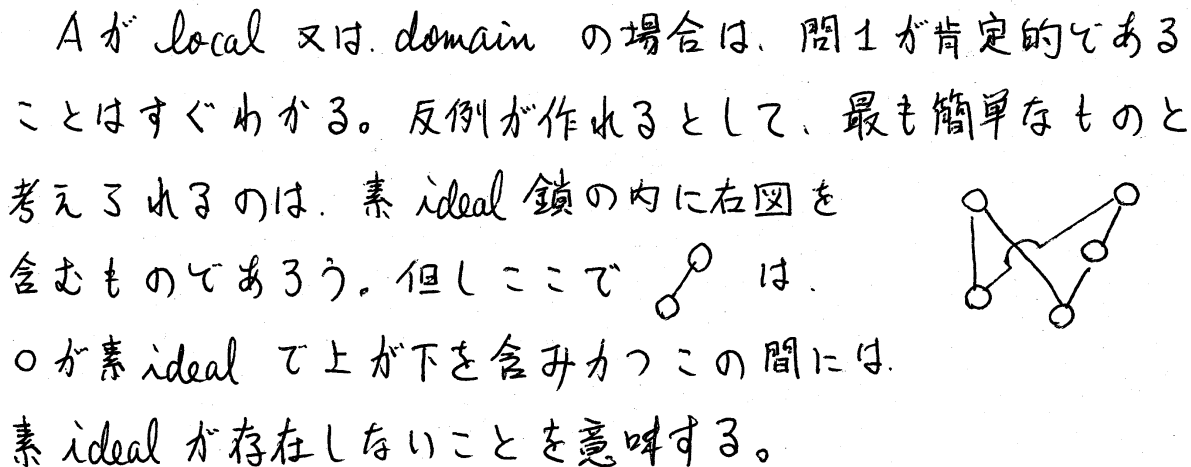 Aが local 又は. domain の場合は、問1が肯定的である
ことはすぐわかる。反例が作れるとして、最も簡単なものと
考えられるのは. 素 ideal 鎖の内に右図を
含むものであろう。但しここで は.
○が素 ideal で上が下を含みかつこの間には.
素 ideal が存在しないことを意味する。